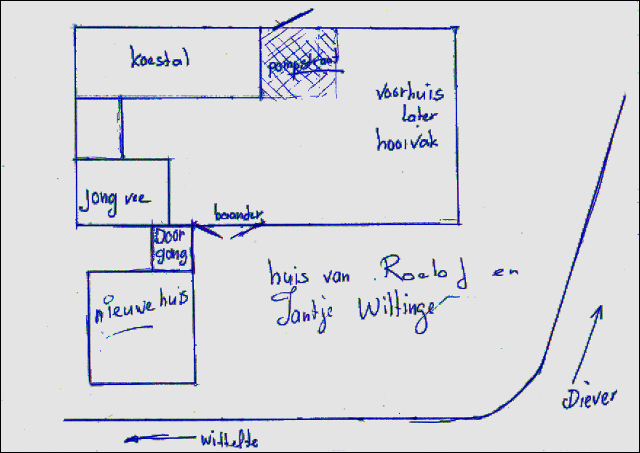 koestal
pompstraat
voorhuis
later
hooivak
Jong vee
baander
Door
gang
nieuwe huis
huis van Roelof en
Jantje Wiltinge
Diever
Wittelte